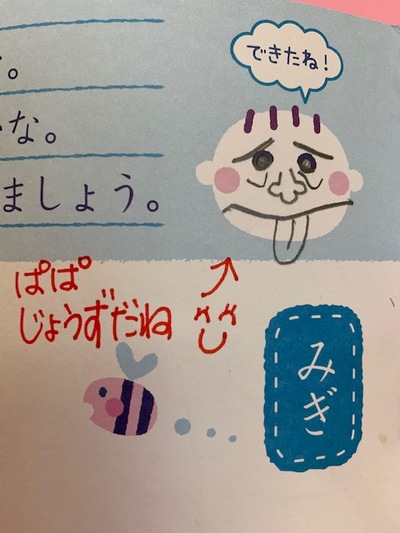 できたね!
な。
ましょう。
ぱぱ
じょうずだね
みぎ